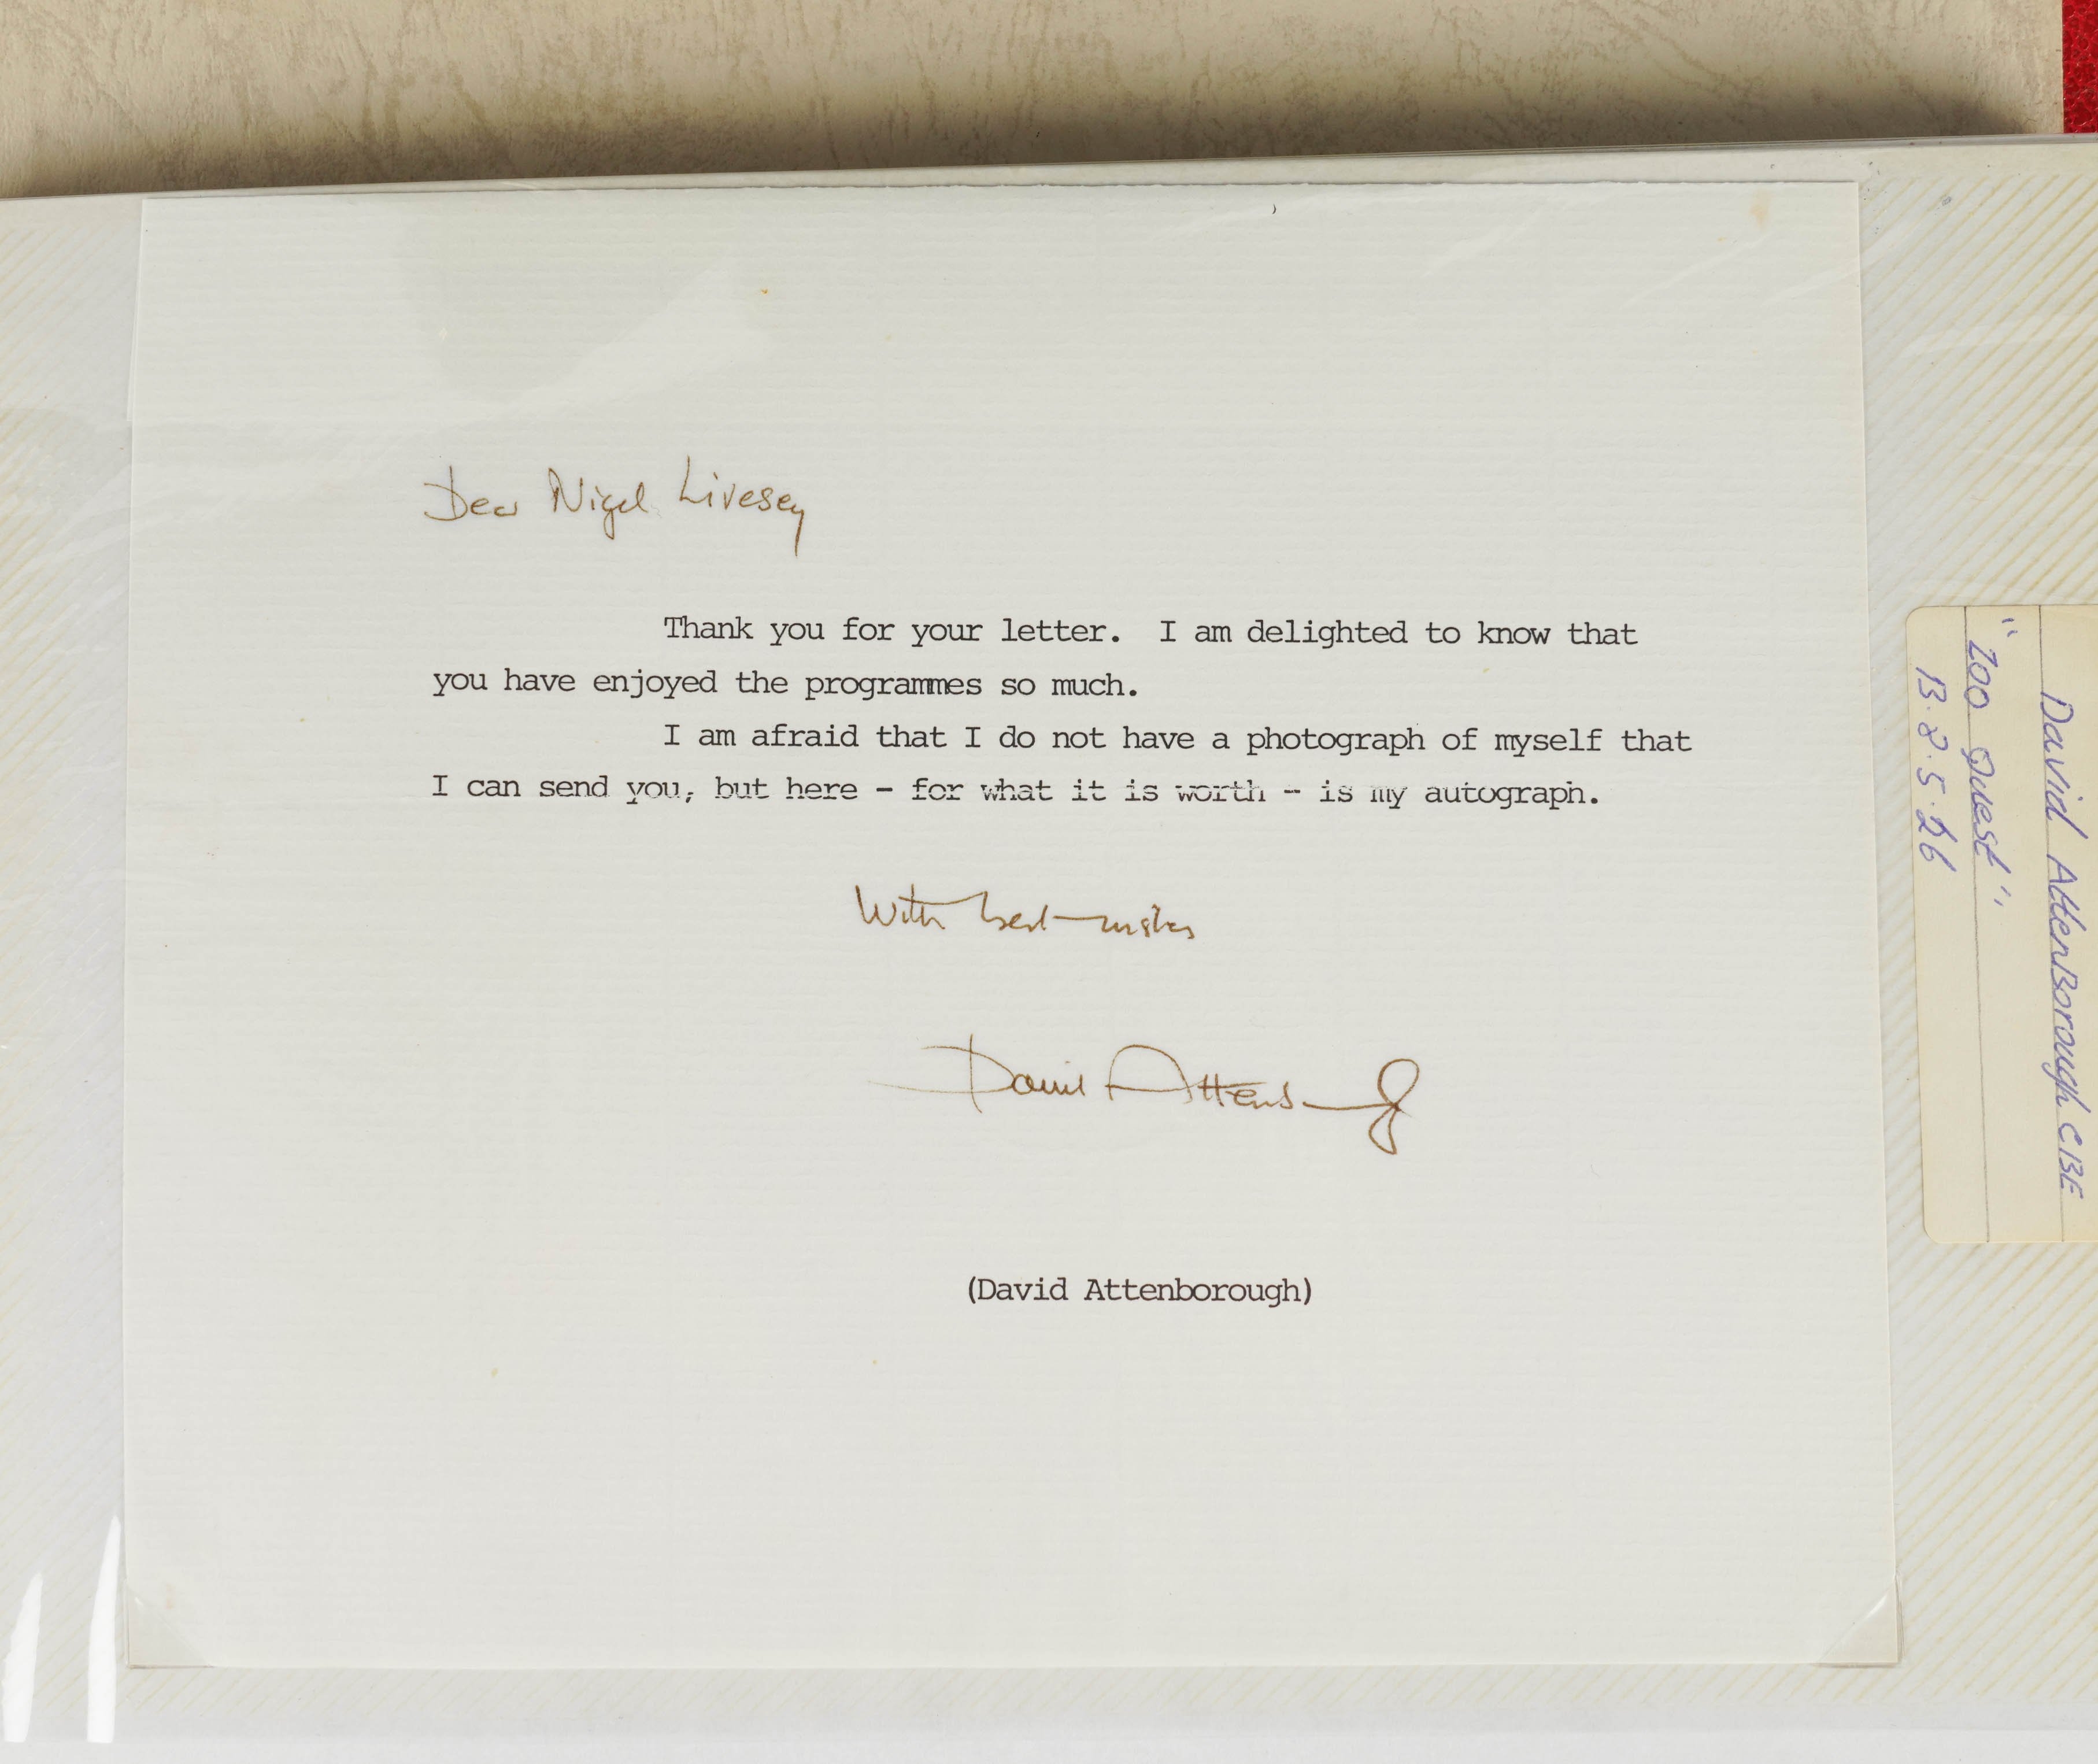 Dear Nigel Livesey
Thank you for your letter. I am delighted to know that
you have enjoyed the programmes so much.
I am afraid that I do not have a photograph of myself that
I can send you, but here - for what it is worth - is my autograph.
With best wishes
David Attenborough
(David Attenborough)
David Attenborough CBE
"Zoo Quest"
B. 8.5.26